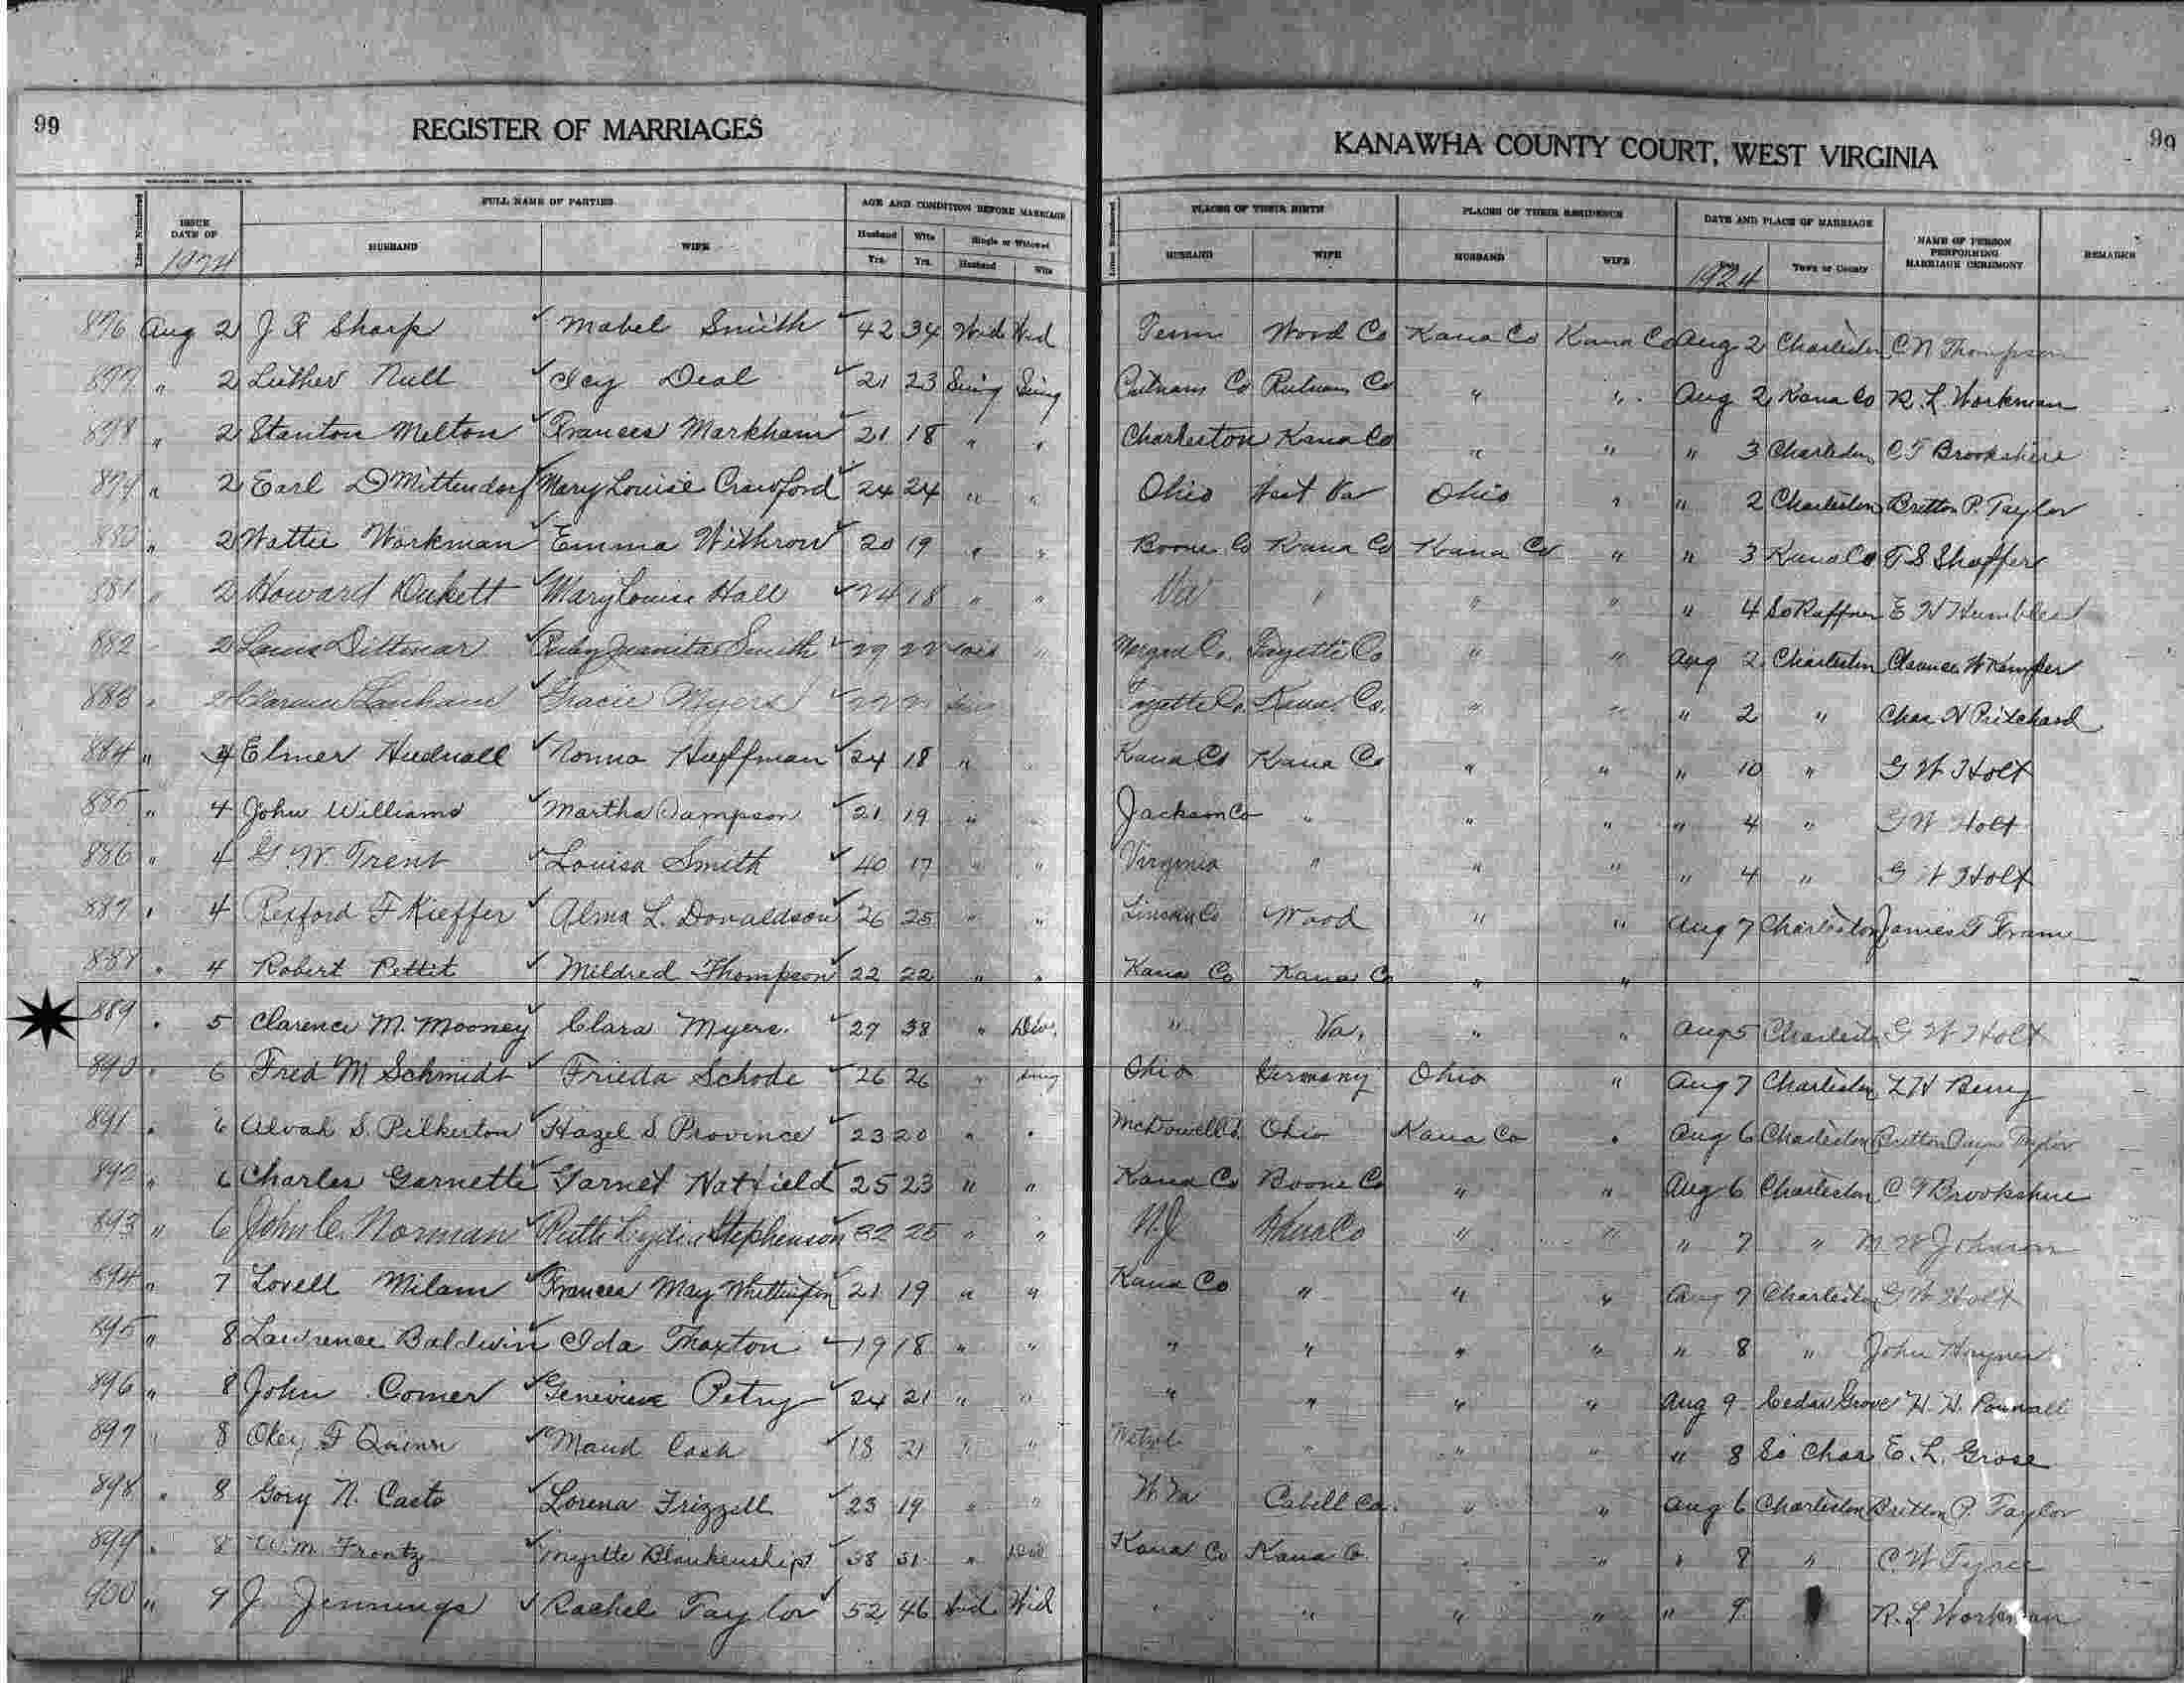 99
REGISTER OF MARRIAGES
KANAWHA COUNTY COURT, WEST VIRGINIA
99
Lines Numbered
ISSUE DATE OF
1924
FULL NAME OF PARTIES
HUSBAND
WIFE
AGE AND CONDITION BEFORE MARRIAGE
Husband Wife Single or Widowed
Yrs. Yrs. Husband Wife
Lines Numbered
PLACES OF THEIR BIRTH
HUSBAND WIFE
PLACES OF THEIR RESIDENCE
HUSBAND WIFE
DATE AND PLACE OF MARRIAGE
1924
Town or County
NAME OF PERSON PERFORMING MARRIAGE CEREMONY
REMARKS
876 Aug 2 J R Sharp Mabel Smith 42 34 Wid Wid Tenn Wood Co Kana Co Kana Co Aug 2 Charleston C N Thompson
877 " 2 Luther Null Icy Deal 21 23 Sing Sing Putnam Co Putnam Co " " Aug 2 Kana Co R. L. Workman
878 " 2 Stanton Melton Frances Markham 21 18 " " Charleston Kana Co " " " 3 Charleston C F Brookshire
879 " 2 Earl D Mittendorf Mary Louise Crawford 24 24 " " Ohio West Va Ohio " " 2 Charleston Britton P. Taylor
880 " 2 Wattie Workman Emma Withrow 20 19 " " Boone Co Kana Co Kana Co " " 3 Kana Co T S Shaffer
881 " 2 Howard Dukett Mary Louise Hall 24 18 " " Va " " " " 4 So Ruffner E H Humbles
882 " 2 Louis Dittmar Ruby Juanita Smith 29 22 Wid " Morgan Co. Fayette Co " " Aug 2 Charleston Clarence W Kemper
883 " 2 Clarence Lanham Gracie Myers 22 21 Sing Fayette Co. Kana. Co. " " " 2 " Chas. H Pritchard
884 " 4 Elmer Hudnall Nonna Huffman 24 18 " Kana Co Kana Co " " " 10 " G W Holt
885 " 4 John Williams Martha Sampson 21 19 " Jackson Co " " " " 4 " G W Holt
886 " 4 G. W. Trent Louisa Smith 40 17 " " Virginia " " " " 4 " G W Holt
887 " 4 Rexford F Kieffer Alma L. Donaldson 26 25 " " Lincoln Co Wood " " Aug 7 Charleston James T Frame
888 " 4 Robert Pettit Mildred Thompson 22 22 " " Kana Co Kana Co " "
889 " 5 Clarence M. Mooney Clara Myers. 27 38 " Div. " Va. " " Aug 5 Charleston G W Holt
890 " 6 Fred M Schmidt Frieda Schode 26 26 " Sing Ohio Germany Ohio " Aug 7 Charleston L H Berry
891 " 6 Alvah S. Pilkerton Hazel S. Province 23 20 " " McDowell Co. Ohio Kana Co " Aug 6 Charleston Britton Payne Taylor
892 " 6 Charles Garnette Garnet Hatfield 25 23 " " Kana Co Boone Co " " Aug 6 Charleston C F Brookshire
893 " 6 John C. Norman Ruth Lydia Stephenson 32 25 " " N.J. Kana Co " " " 7 " M W Johnson
894 " 7 Lovell Milam Frances May Whittington 21 19 " " Kana Co " " " Aug 7 Charleston G W Holt
895 " 8 Lawrence Baldwin Ida Thaxton 19 18 " " " " " " " 8 " John Haynes
896 " 8 John Comer Genevieve Petry 24 21 " " " " " " Aug 9 Cedar Grove H. H. Pownall
897 " 8 Okey F Quinn Maud Cash 18 21 " " Wetzel " " " " 8 So Chas E. L. Grose
898 " 8 Gory N. Casto Lorena Frizzell 23 19 " " W. Va Cabell Co. " " Aug 6 Charleston Britton P. Taylor
899 " 8 W.M. Frantz Myrtle Blankenship 38 31 " Div Kana Co Kana Co " " " 8 " C. W Tyree
900 " 9 J Jennings Rachel Taylor 52 46 Wid Wid " " " " " 9 R. L Workman